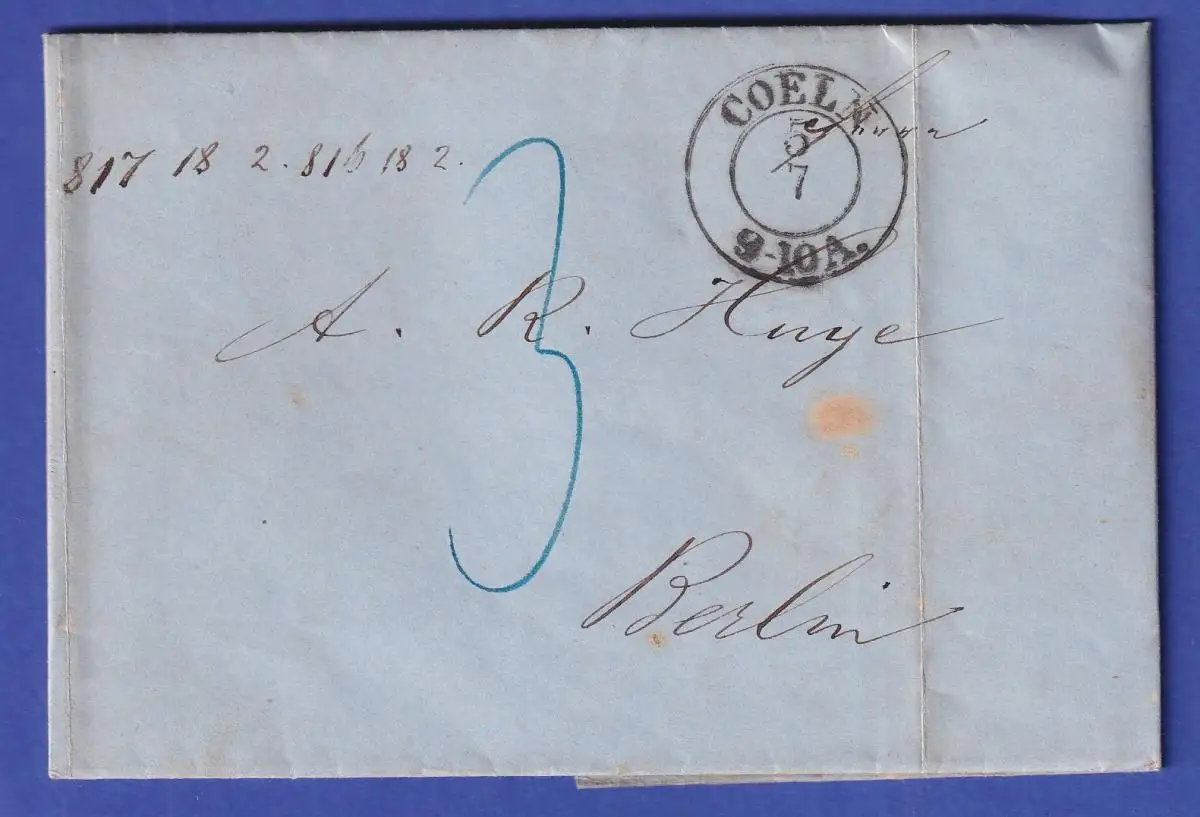 COELN
5
7
9-10 A.
817 18 2. 816 18 2.
3
A. R. Huye
Berlin